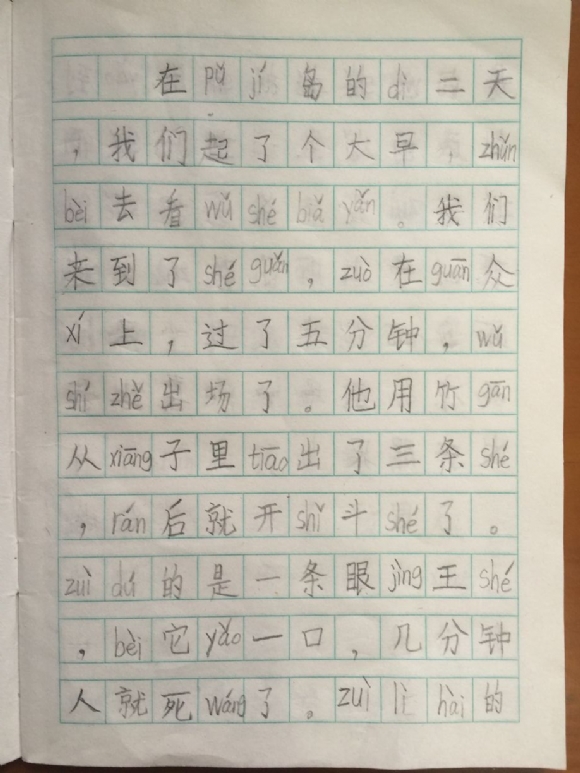 在pǔjí岛的dì二天
，我们起了个大早，zhǔn
bèi去看wǔshébiǎyǎn。我们
来到了shéguǎn，zuò在guān众
xí上，过了五分钟，wǔ
shézhě出场了。他用竹gān
从xiāng子里tiāo出了三条shé
，rán后就开shǐ斗shé了。
zuìdú的是一条眼jìng王shé
，bèi它yǎo一口，几分钟
人就死wáng了。zuìlìhài的